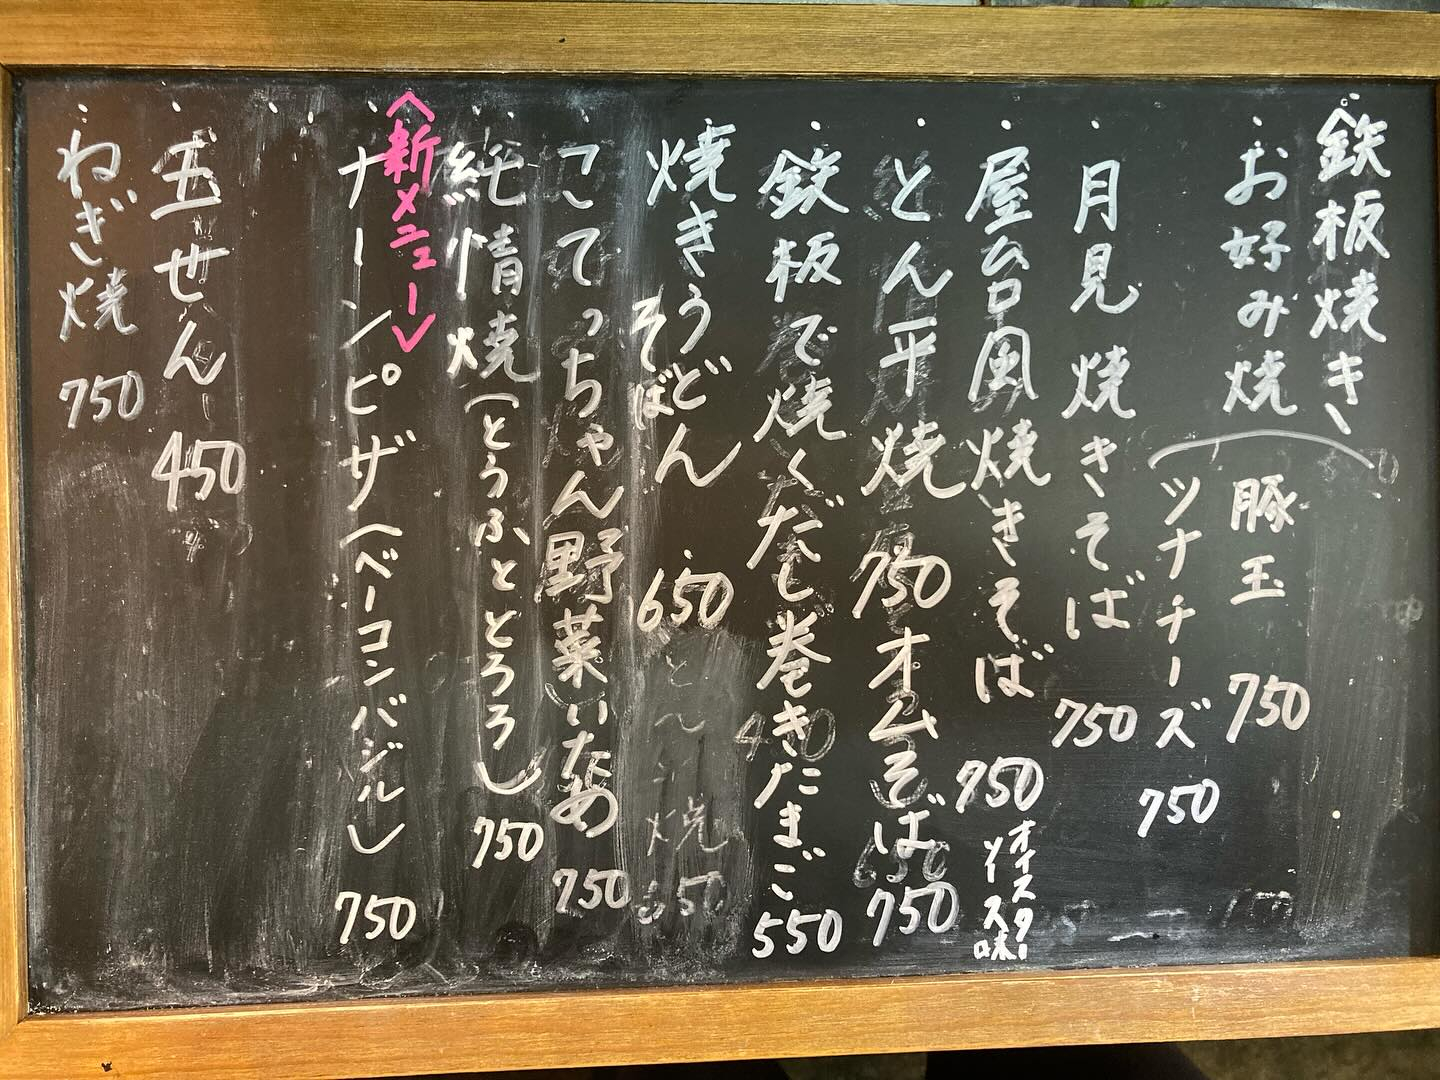 鉄板焼き
・お好み焼(豚玉 750
ツナチーズ 750
・月見焼きそば 750
・屋台風焼きそば 750 オイスターソース味
・とん平焼 750 オムそば 750
・鉄板で焼くだし巻きたまご 550
・焼きうどん 650
そば
・こてっちゃん野菜いため 750
・純情焼(とうふととろろ) 750
〈新メニュー〉
・ナーンピザ(ベーコンバジル) 750
・五せん 450
・ねぎ焼 750